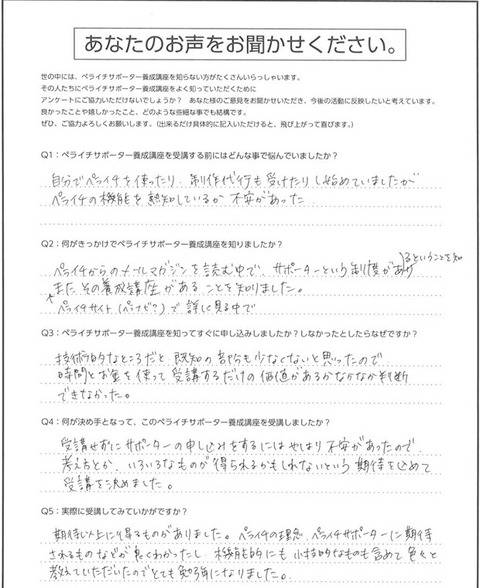 あなたのお声をお聞かせください。
世の中には、ペライチサポーター養成講座を知らない方がたくさんいらっしゃいます。
その人たちにペライチサポーター養成講座をよく知っていただくために
アンケートにご協力いただけないでしょうか？　あなた様のご意見をお聞かせいただき、今後の活動に反映したいと考えています。
良かったことや嬉しかったこと、どのような些細な事でも結構です。
ぜひ、ご協力よろしくお願いします。（出来るだけ具体的に記入いただけると、飛び上がって喜びます。）
Q1：ペライチサポーター養成講座を受講する前にはどんな事で悩んでいましたか？
自分でペライチを使ったり、制作代行も受けたりし始めていましたが
ペライチの機能を熟知しているか不安があった
Q2：何がきっかけでペライチサポーター養成講座を知りましたか？
ペライチからのメールマガジンを読む中で、サポーターという制度があるということを知り
また その養成講座がある ことを知りました。
ペライチサイト（ペラナビ？）で詳しく見る中で
Q3：ペライチサポーター養成講座を知ってすぐに申し込みしましたか？しなかったとしたらなぜですか？
技術的なところだと、既知の部分も少なくないと思ったので
時間とお金を使って受講するだけの価値があるかなかなか判断
できなかった。
Q4：何が決め手となって、このペライチサポーター養成講座を受講しましたか？
受講せずにサポーターの申し込みをするにはやはり不安があったので、
考え方とか、いろいろなものが得られるかもしれないという期待を込めて
受講を決めました。
Q5：実際に受講してみていかがですか？
期待以上に得るものがありました。ペライチの理念、ペライチサポーターに期待
されるものなどが良くわかったし、機能的にも小技的なものも含めて色々と
教えていただいたのでとても勉強になりました。